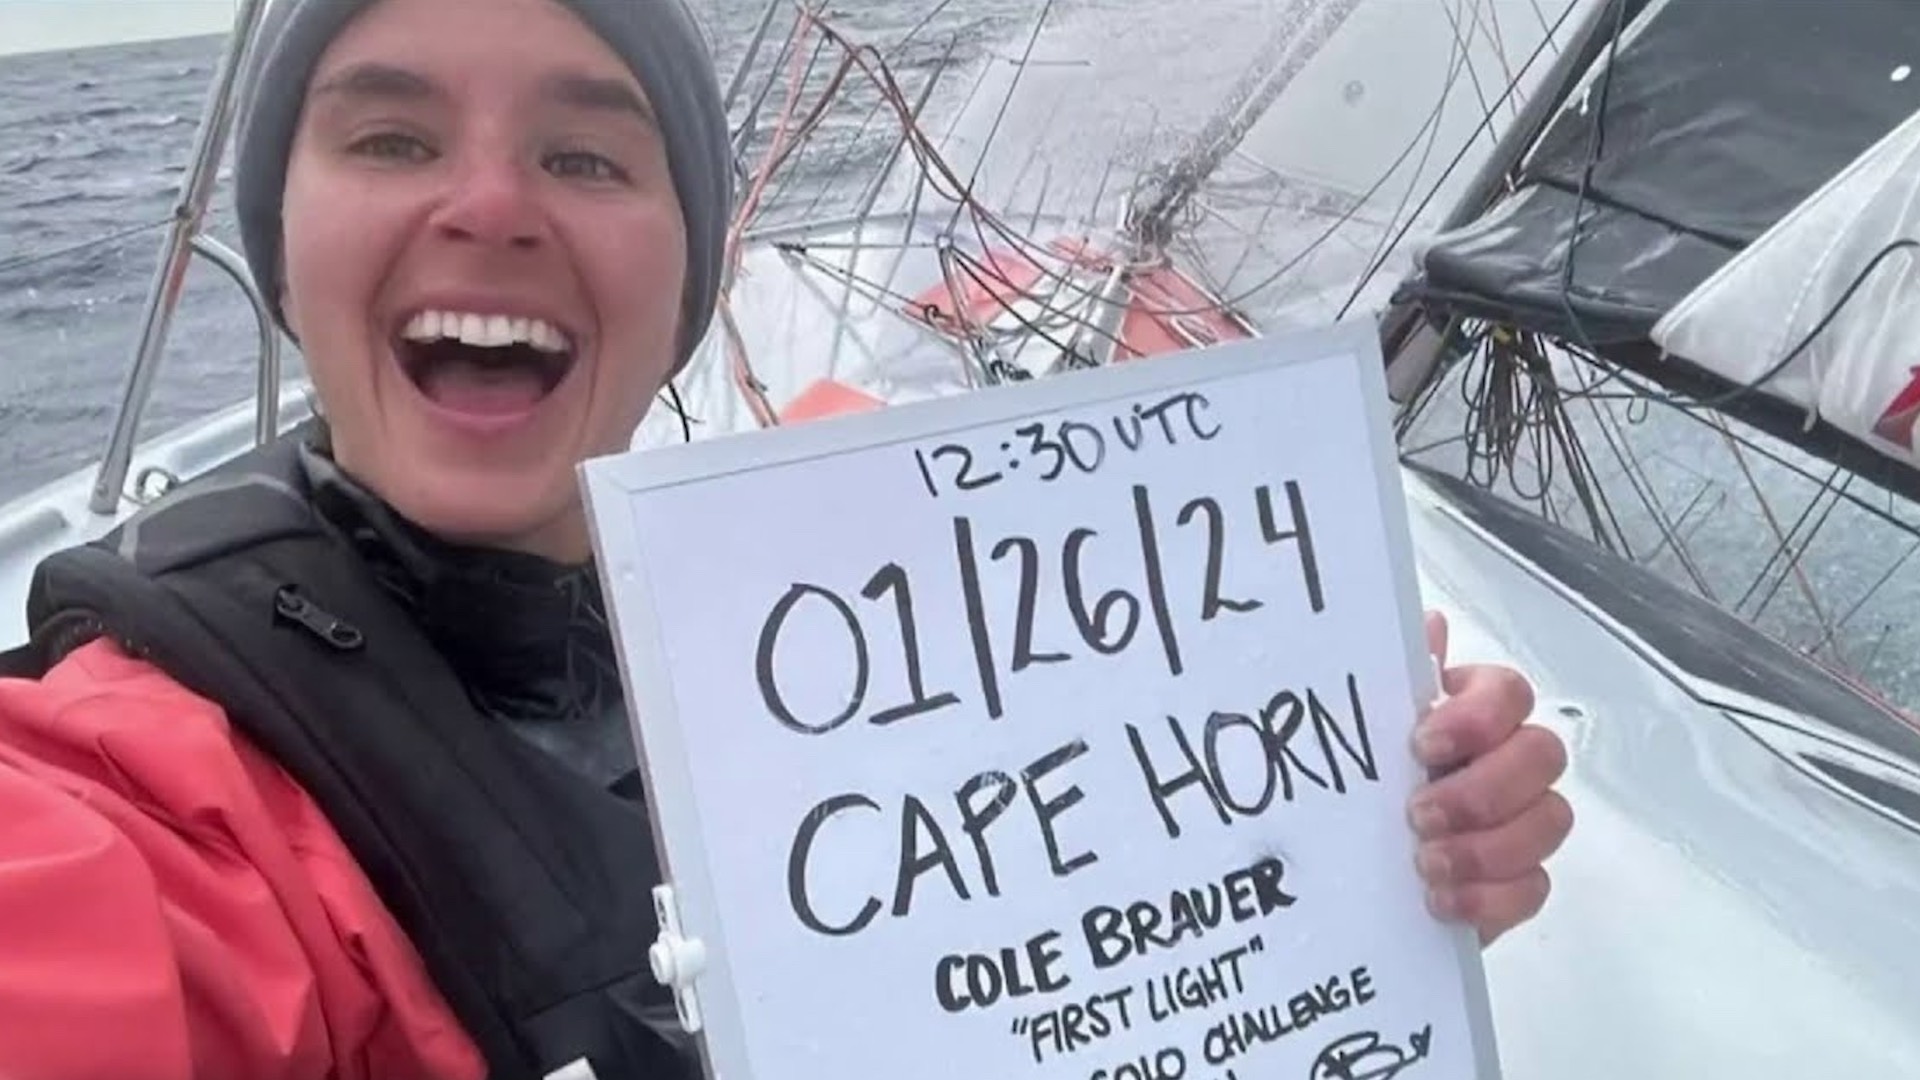 12:30 UTC
01/26/24
CAPE HORN
COLE BRAUER
"FIRST LIGHT"
SOLO CHALLENGE